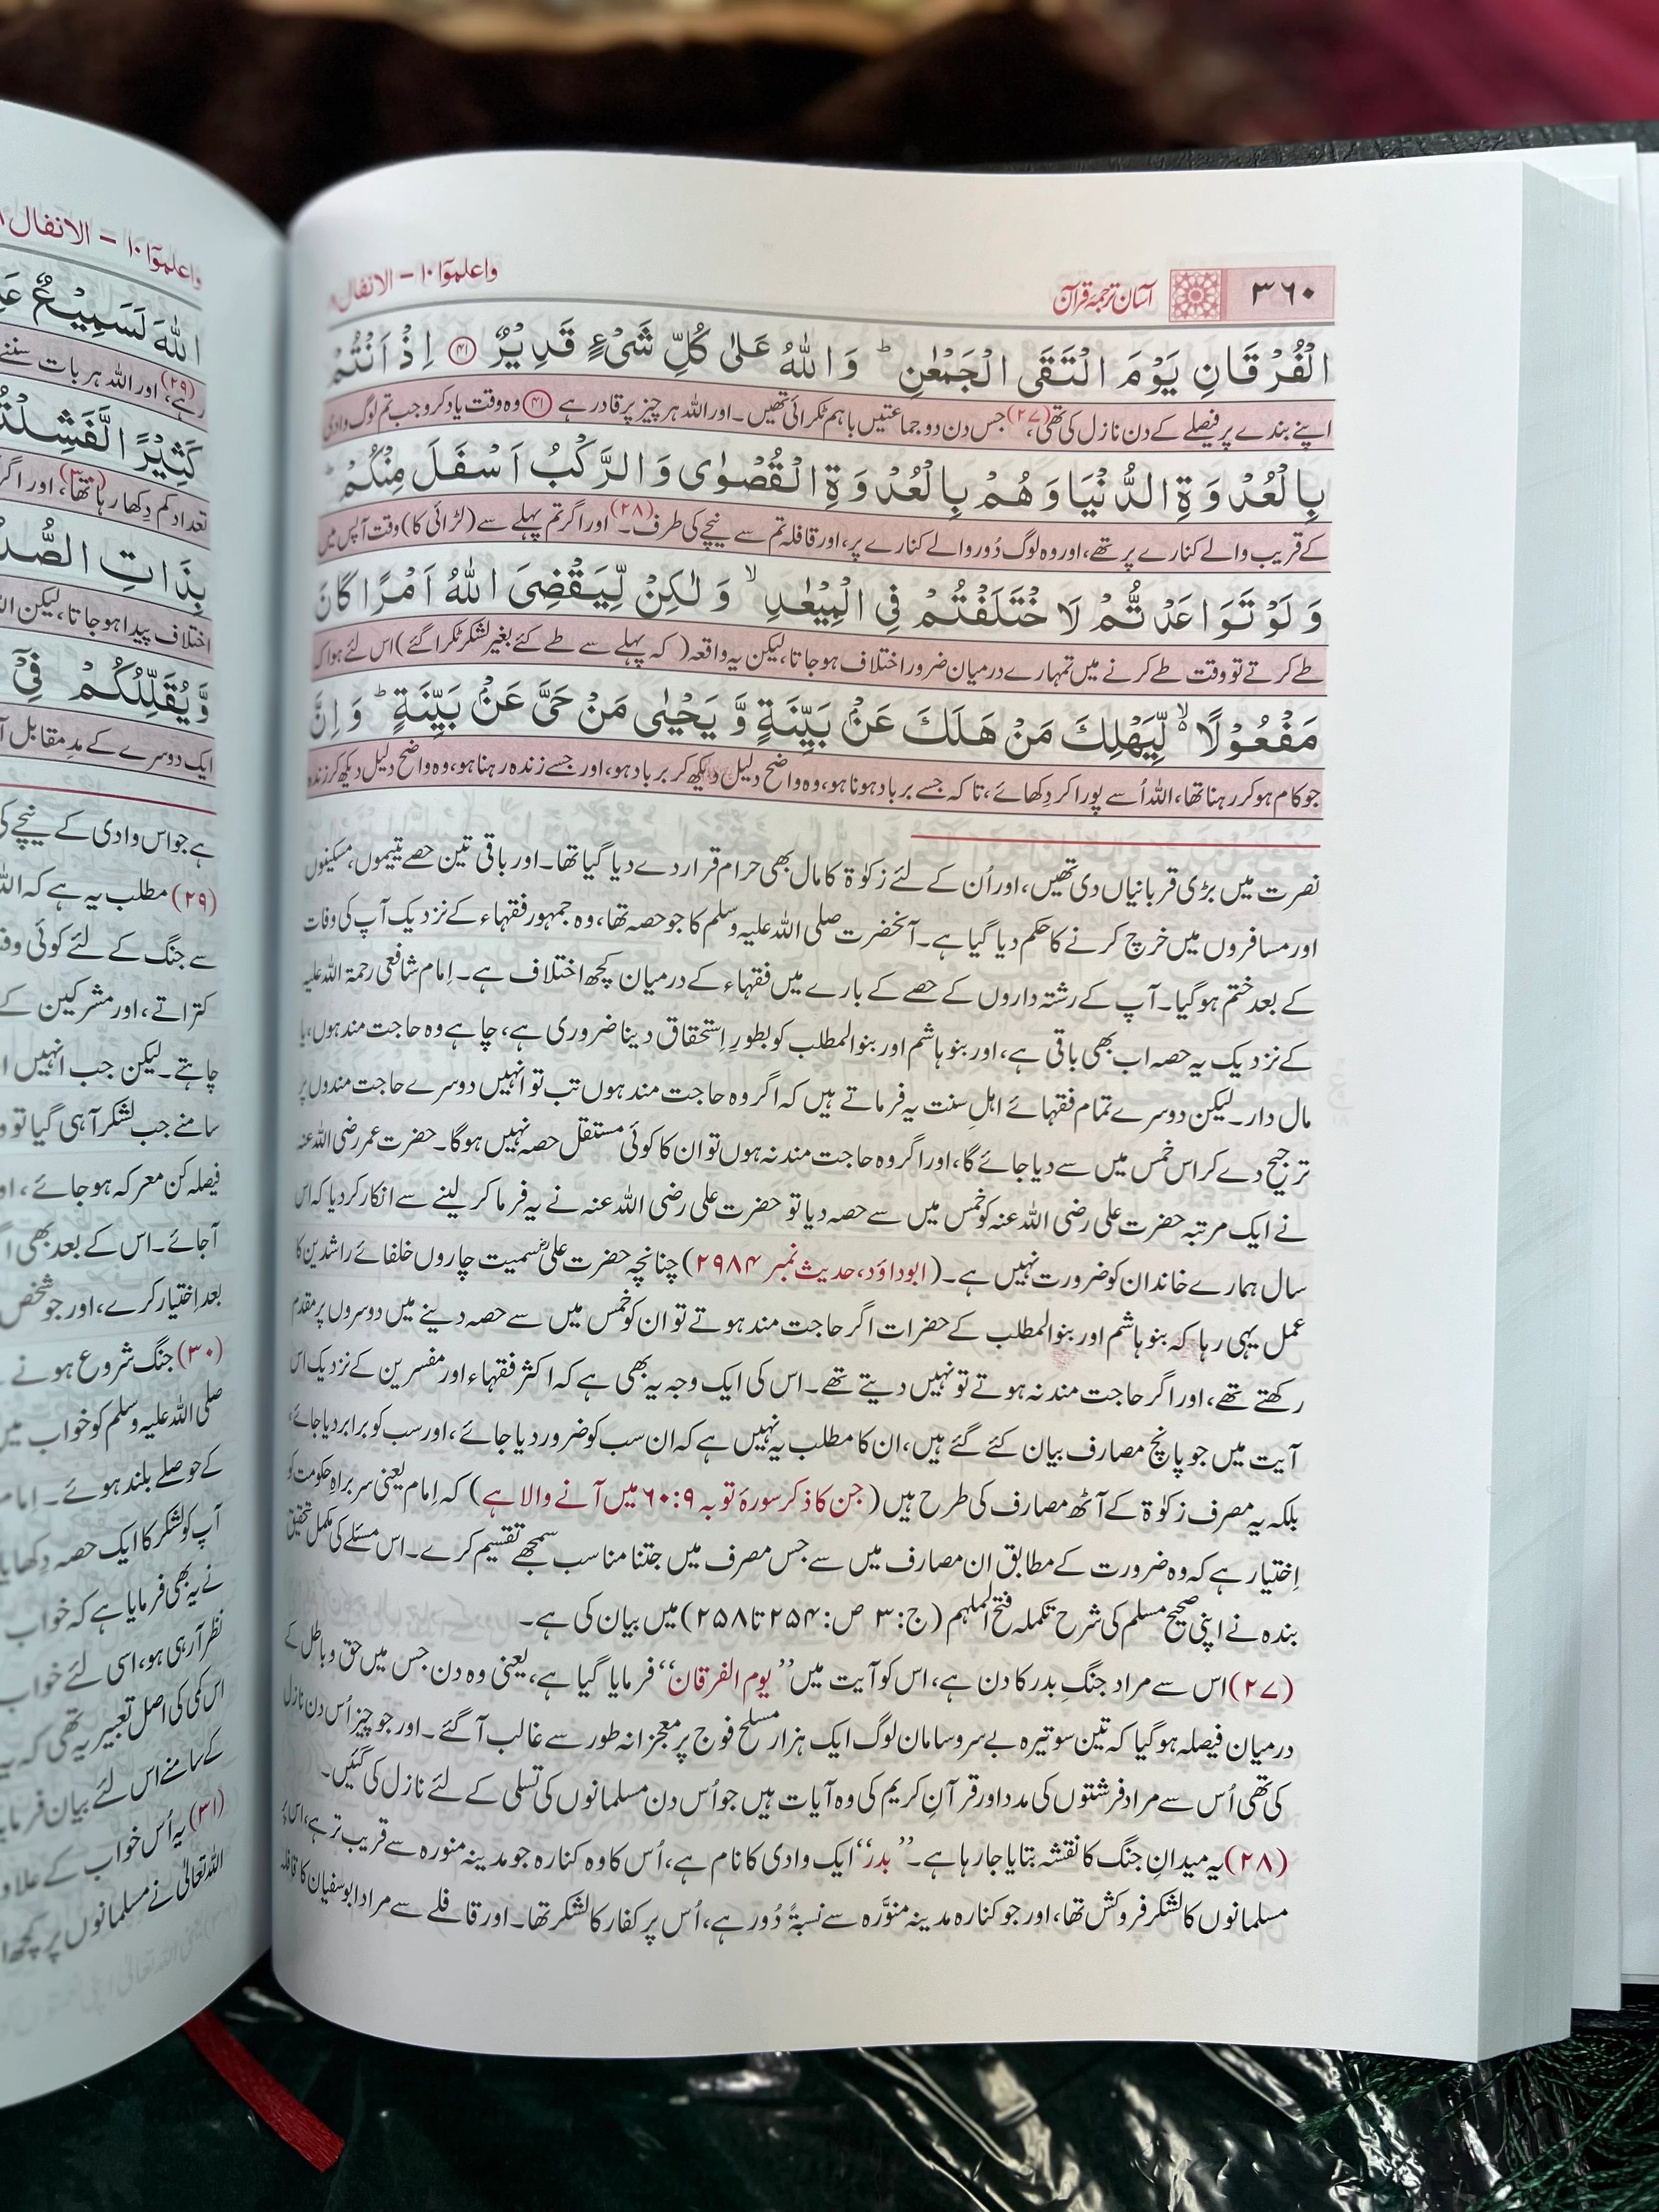 ۳۶۰ آسان ترجمۂ قرآن واعلموٓا ۱۰ – الانفال ۸
الْفُرْقَانِ یَوْمَ الْتَقَی الْجَمْعٰنِ ؕ وَ اللّٰهُ عَلٰی كُلِّ شَیْءٍ قَدِیْرٌ ﴿۴۱﴾ اِذْ اَنْتُمْ
اپنے بندے پر فیصلے کے دن نازل کی تھی،(۲۷) جس دن دو جماعتیں باہم ٹکرائی تھیں۔ اور اللہ ہر چیز پر قادر ہے ﴿۴۱﴾ وہ وقت یاد کرو جب تم لوگ وادی
بِالْعُدْوَةِ الدُّنْیَا وَ هُمْ بِالْعُدْوَةِ الْقُصْوٰی وَ الرَّكْبُ اَسْفَلَ مِنْكُمْ ؕ
کے قریب والے کنارے پر تھے، اور وہ لوگ دُور والے کنارے پر، اور قافلہ تم سے نیچے کی طرف۔(۲۸) اور اگر تم پہلے سے (لڑائی کا) وقت آپس میں
وَ لَوْ تَوَاعَدْتُّمْ لَاخْتَلَفْتُمْ فِی الْمِیْعٰدِ ۙ وَ لٰكِنْ لِّیَقْضِیَ اللّٰهُ اَمْرًا كَانَ
طے کرتے تو وقت طے کرنے میں تمہارے درمیان ضرور اختلاف ہو جاتا، لیکن یہ واقعہ (کہ پہلے سے طے کئے بغیر لشکر ٹکرا گئے) اس لئے ہوا کہ
مَفْعُوْلًا ۙ۬ لِّیَهْلِكَ مَنْ هَلَكَ عَنْۢ بَیِّنَةٍ وَّ یَحْیٰی مَنْ حَیَّ عَنْۢ بَیِّنَةٍ ؕ وَ اِنَّ
جو کام ہو کر رہنا تھا، اللہ اُسے پورا کر دِکھائے، تاکہ جسے برباد ہونا ہو، وہ واضح دلیل دیکھ کر برباد ہو، اور جسے زندہ رہنا ہو، وہ واضح دلیل دیکھ کر زندہ
نصرت میں بڑی قربانیاں دی تھیں، اور اُن کے لئے زکوٰۃ کا مال بھی حرام قرار دے دیا گیا تھا۔ اور باقی تین حصے یتیموں، مسکینوں
اور مسافروں میں خرچ کرنے کا حکم دیا گیا ہے۔ آنحضرت صلی اللہ علیہ وسلم کا جو حصہ تھا، وہ جمہور فقہاء کے نزدیک آپ کی وفات
کے بعد ختم ہوگیا۔ آپ کے رشتہ داروں کے حصے کے بارے میں فقہاء کے درمیان کچھ اختلاف ہے۔ اِمام شافعی رحمۃ اللہ علیہ
کے نزدیک یہ حصہ اب بھی باقی ہے، اور بنو ہاشم اور بنو المطلب کو بطورِ اِستحقاق دینا ضروری ہے، چاہے وہ حاجت مند ہوں، یا
مال دار۔ لیکن دوسرے تمام فقہائے اہلِ سنت یہ فرماتے ہیں کہ اگر وہ حاجت مند ہوں تب تو اُنہیں دوسرے حاجت مندوں پر
ترجیح دے کر اس خمس میں سے دیا جائے گا، اور اگر وہ حاجت مند نہ ہوں تو ان کا کوئی مستقل حصہ نہیں ہوگا۔ حضرت عمر رضی اللہ عنہ
نے ایک مرتبہ حضرت علی رضی اللہ عنہ کو خمس میں سے حصہ دیا تو حضرت علی رضی اللہ عنہ نے یہ فرما کر لینے سے انکار کر دیا کہ اس
سال ہمارے خاندان کو ضرورت نہیں ہے۔ (ابوداؤد، حدیث نمبر ۲۹۸۴) چنانچہ حضرت علیؓ سمیت چاروں خلفائے راشدین کا
عمل یہی رہا کہ بنو ہاشم اور بنو المطلب کے حضرات اگر حاجت مند ہوتے تو ان کو خمس میں سے حصہ دینے میں دوسروں پر مقدم
رکھتے تھے، اور اگر حاجت مند نہ ہوتے تو نہیں دیتے تھے۔ اس کی ایک وجہ یہ بھی ہے کہ اکثر فقہاء اور مفسرین کے نزدیک اس
آیت میں جو پانچ مصارف بیان کئے گئے ہیں، ان کا مطلب یہ نہیں ہے کہ ان سب کو ضرور دیا جائے، اور سب کو برابر دیا جائے،
بلکہ یہ مصرف زکوٰۃ کے آٹھ مصارف کی طرح ہیں (جن کا ذکر سورۂ توبہ ۹:۶۰ میں آنے والا ہے) کہ اِمام یعنی سربراہِ حکومت کو
اِختیار ہے کہ وہ ضرورت کے مطابق ان مصارف میں سے جس مصرف میں جتنا مناسب سمجھے تقسیم کرے۔ اس مسئلے کی مکمل تحقیق
بندہ نے اپنی صحیح مسلم کی شرح تکملہ فتح الملہم (ج:۳ ص:۲۵۴ تا ۲۵۸) میں بیان کی ہے۔
(۲۷) اس سے مراد جنگِ بدر کا دن ہے، اس کو آیت میں ’’یوم الفرقان‘‘ فرمایا گیا ہے، یعنی وہ دن جس میں حق و باطل کے
درمیان فیصلہ ہوگیا کہ تین سو تیرہ بے سروسامان لوگ ایک ہزار مسلح فوج پر معجزانہ طور سے غالب آگئے۔ اور جو چیز اُس دن نازل
کی تھی اُس سے مراد فرشتوں کی مدد اور قرآنِ کریم کی وہ آیات ہیں جو اُس دن مسلمانوں کی تسلی کے لئے نازل کی گئیں۔
(۲۸) یہ میدانِ جنگ کا نقشہ بتایا جا رہا ہے۔ ’’بدر‘‘ ایک وادی کا نام ہے، اُس کا وہ کنارہ جو مدینہ منورہ سے قریب تر ہے، اس پر
مسلمانوں کا لشکر فروکش تھا، اور جو کنارہ مدینہ منوَّرہ سے نسبۃً دُور ہے، اُس پر کفار کا لشکر تھا۔ اور قافلے سے مراد ابوسفیان کا قافلہ
واعلموٓا ۱۰ – الانفال
اللّٰهَ لَسَمِیْعٌ
رہے،(۲۹) اور اللہ ہر بات سننے
كَثِیْرًا لَّفَشِلْتُ
تعداد کم دِکھا رہا تھا،(۳۰) اور اگر
بِذَاتِ الصُّدُ
اختلاف پیدا ہو جاتا، لیکن
وَّ یُقَلِّلُكُمْ فِیْۤ
ایک دوسرے کے مدِ مقابل
ہے جو اس وادی کے نیچے کی
(۲۹) مطلب یہ ہے کہ
سے جنگ کے لئے کوئی
کتراتے، اور مشرکین کے
چاہتے۔ لیکن جب انہیں
سامنے جب لشکر آہی گیا تو
فیصلہ کن معرکہ ہو جائے،
آجائے۔ اس کے بعد بھی
بعد اِختیار کرے، اور جو شخص
(۳۰) جنگ شروع ہونے
صلی اللہ علیہ وسلم کو خواب میں
کے حوصلے بلند ہوئے۔
آپ کو لشکر کا ایک حصہ دِکھایا
نے یہ بھی فرمایا ہے کہ خواب
نظر آ رہی ہو، اسی لئے خواب
اس کمی کی اصل تعبیر یہ تھی کہ
کے سامنے اس لئے بیان
(۳۱) یہ اُس خواب کے علاوہ
اللہ تعالیٰ نے مسلمانوں پر کچھ